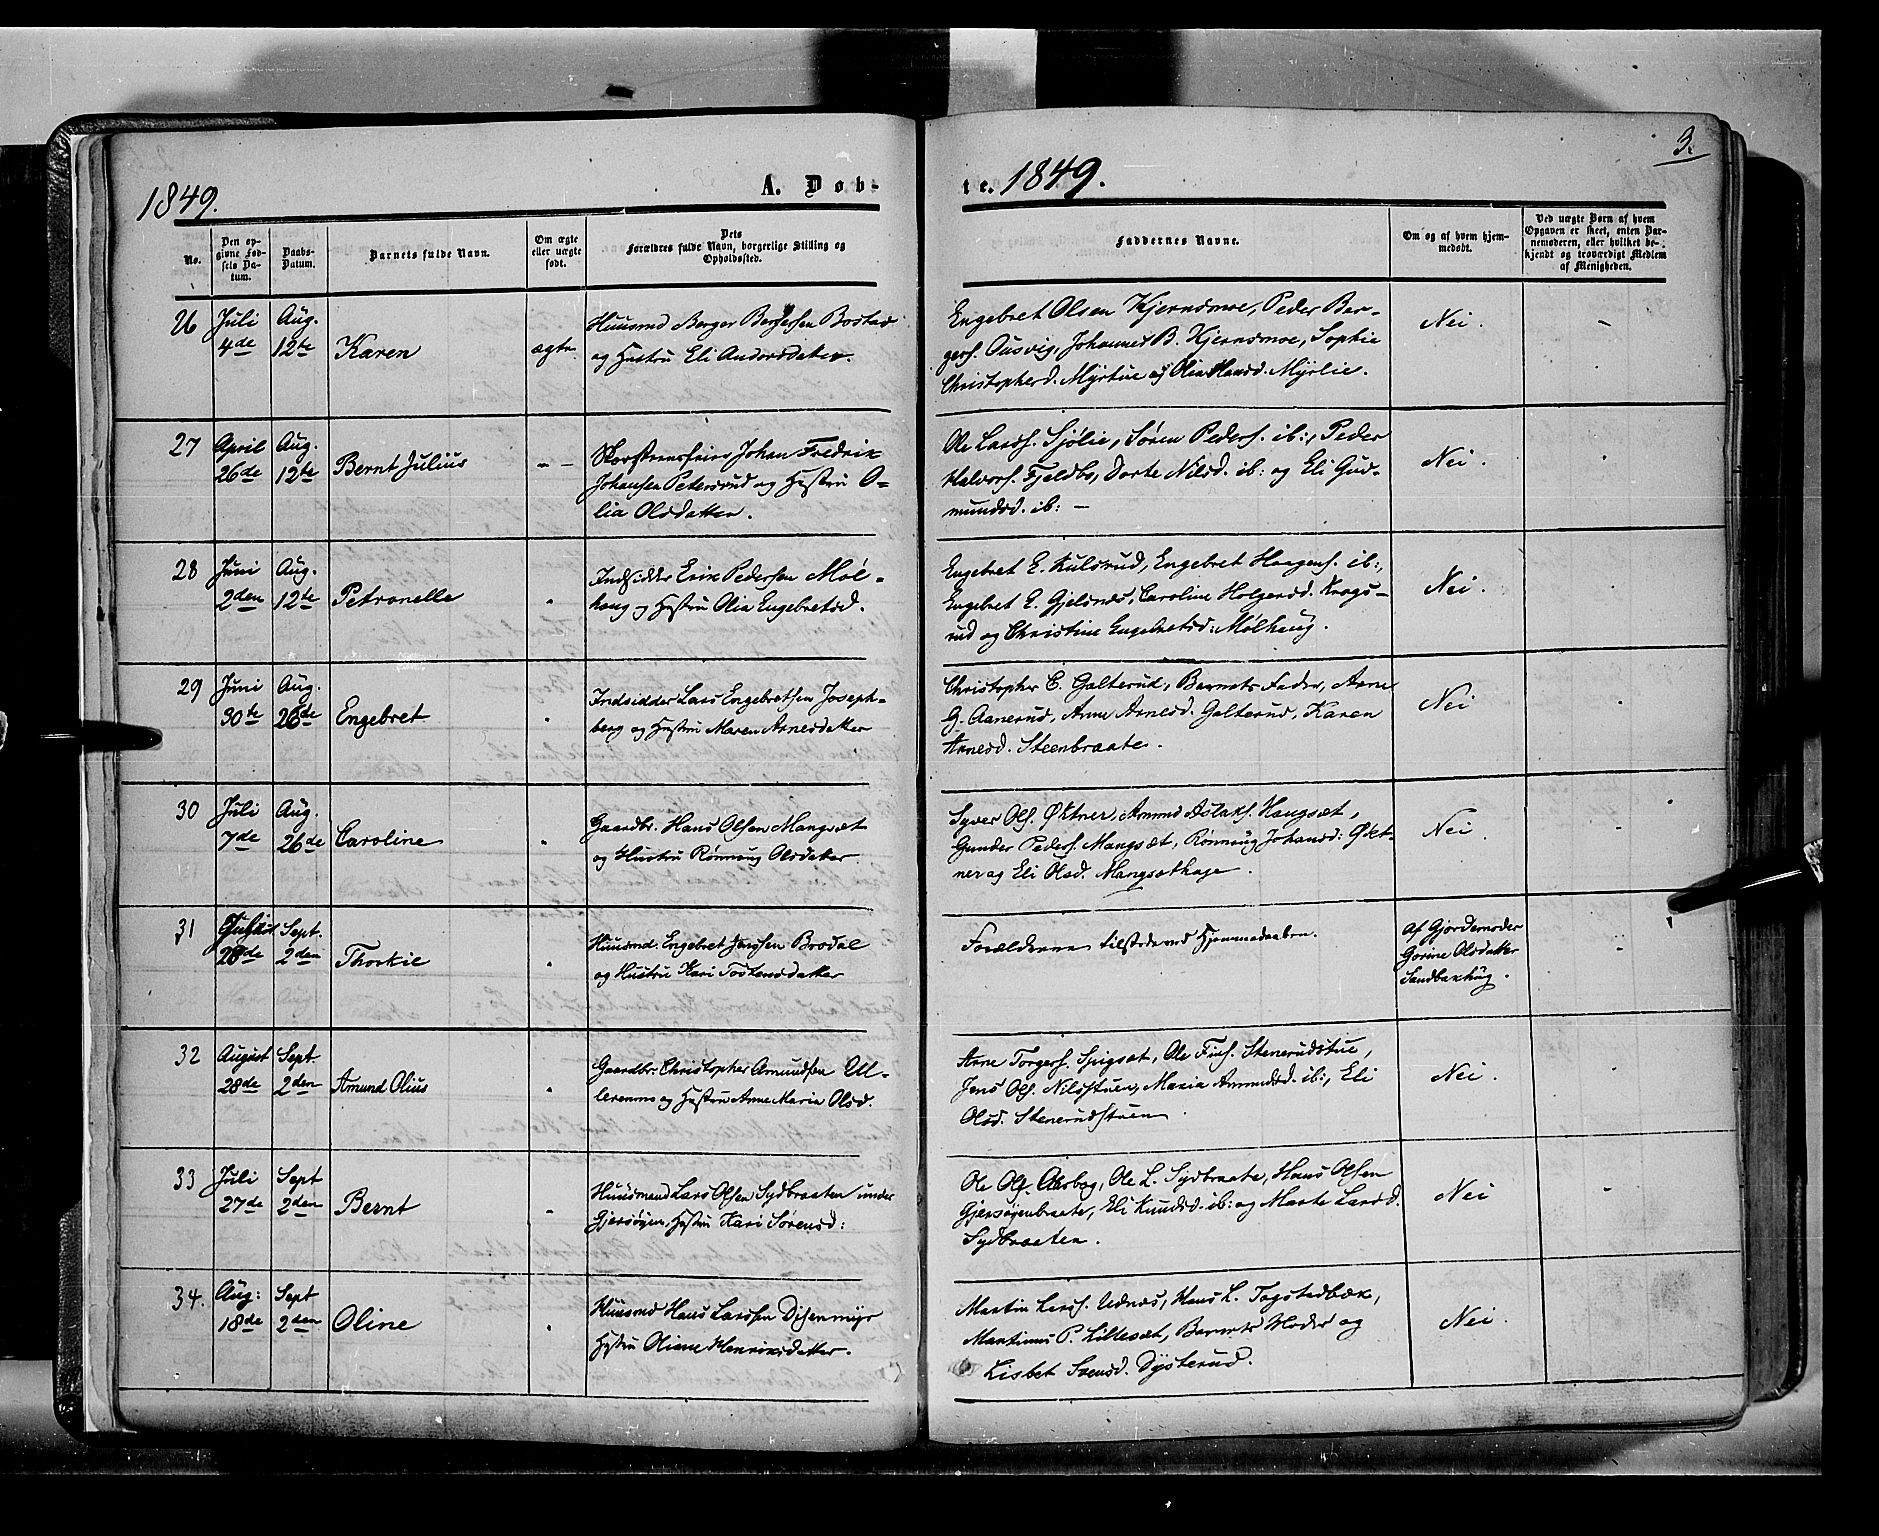 3.
1849.
A. Døb-
te. 1849.
No.
Den op-
givne Fød-
sels Da-
tum.
Daabs-
Datum.
Barnets fulde Navn.
Om ægte
eller uægte
født.
Dets
Forældres fulde Navn, borgerlige Stilling og
Opholdssted.
Faddernes Navne.
Om og af hvem hjem-
medøbt.
Ved uægte Børn af hvem
Opgaven er skeet, enten Bar-
nemoderen, eller hvilket be-
kjendt og troværdigt Medlem
af Menigheden.
26
Juli
4de
Aug.
12te
Karen
ægte
Huusmd Berger Bergersen Bostad
og Hustru Eli Andersdatter.
Engebret Olsen Kjernsmoe, Peder Ber-
gers. Ousvig, Johannes B. Kjernsmoe, Sophie
Christopherd. Myrtue og Olea Hansd. Myrlie.
Nei.
27
April
26de
Aug.
12te
Bernt Julius
Skorsteensfeier Johan Fredrik
Johansen Petersrud og Hustru O-
lia Olsdatter.
Ole Larss. Sjølie, Søren Peders. ib:, Peder
Halvors. Fjeldbo, Dorte Nilsd. ib: og Eli Gud-
mundsd. ib: -
Nei.
28
Juni
2den
Aug.
12te
Petronelle
Indsidder Erik Pedersen Møl-
haug og Hustru Olia Engebretsd.
Engebret E. Kulsrud, Engebret Haagens. ib:,
Engebret E. Gjelsnes, Caroline Holgersd. Krogs-
rud og Christine Engebretsd: Mølhaug.
Nei.
29
Juni
30te
Aug.
26de
Engebret
Indsidder Lars Engebretsen Joseph-
berg og Hustru Maren Arnesdatter
Christopher E. Galterud, Barnets Fader, Arne
G. Aanerud, Anne Arnesd. Galterud, Karen
Arnesd. Steenbraate.
Nei
30
Juli
7de
Aug.
26de
Caroline
Gaardbr. Hans Olsen Mangset
og Hustru Rønnaug Olsdatter
Syver Ols. Øktner, Amund Aslaks. Haugsæt,
Gunder Peders. Mangsæt, Rønnaug Johansd: Økt-
ner og Eli Olsd. Mangsæthage.
Nei.
31
28de
Sept.
2den
Thorkil
Huusmd. Engebret Jensen Brodal
og Hustru Kari Tostensdatter
Forældrene tilstede ved Hjemmedaaben.
Af Gjordemoder
Gorine Olsdatter
Sandbakhug.
32
August
28de
Sept
2den
Amund Olius
Gaardbr. Christopher Amundsen Ul-
lerenmo og Hustru Anne Maria Olsd.
Arne Torgers. Spigsæt, Ole Fins. Stenerudstue,
Jens Ols. Nilsstuen, Maria Amundsd. ib:, Eli
Olsd. Stenerudstuen.
Nei.
33
Juli
27de
Sept
2den
Bernt
Huusmand Lars Olsen Sydbraaten under
Gjersøyen, Hustru Kari Sørensd:
Ole Ols. Aasbog, Ole L. Sydbraate, Hans Olsen
Gjersøyenbraate, Eli Knudsd. ib: og Marte Larsd.
Sydbraaten.
Nei
34.
Aug:
18de
Sept
2den
Oline
Huusmd Hans Larssen Disenmyr
Hustru Oliane Henriksdatter.
Martin Larss. Udnes, Hans L. Togstadbæk,
Martinus P. Lillesæt, Barnets Moder og
Lisbet Svensd. Dysterud.
Nei.